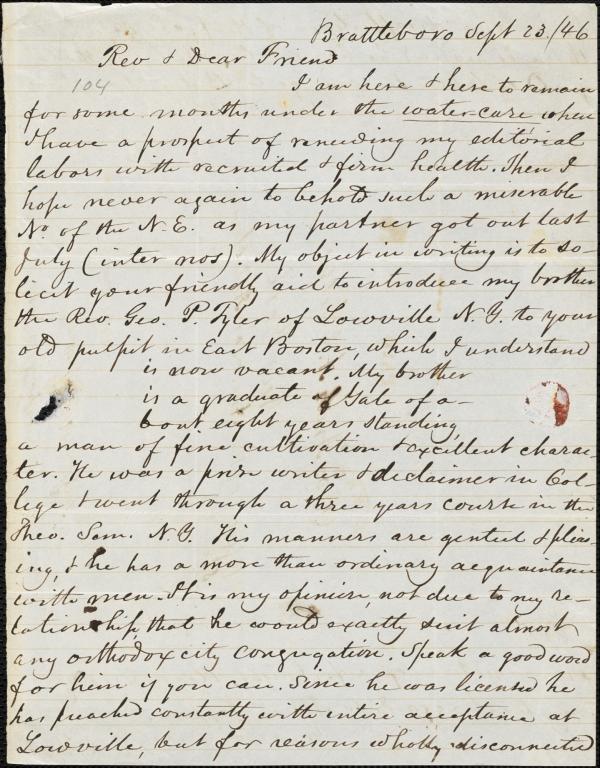 Brattleboro Sept 23./46
Rev & Dear Friend
104
I am here & here to remain
for some months under the water-cure when
I have a prospect of renewing my editorial
labors with recruited & firm health. Then I
hope never again to behold such a miserable
No. of the N.E. as my partner got out last
July (inter nos). My object in writing is to so-
licit your friendly aid to introduce my brother
the Rev. Geo. P. Tyler of Lowville N.Y. to your
old pulpit in East Boston, which I understand
is now vacant. My brother
is a graduate of Yale of a-
bout eight years standing,
a man of fine cultivation & excellent charac-
ter. He was a prize writer & declaimer in Col-
lege & went through a three years course in the
Theo. Sem. N.Y. His manners are genteel & pleas-
ing, & he has a more than ordinary acquaintance
with men. It is my opinion, not due to my re-
lationship, that he would exactly suit almost
any orthodox city congregation. Speak a good word
for him if you can. Since he was licensed he
has preached constantly with entire acceptance at
Lowville, but for reasons wholly disconnected